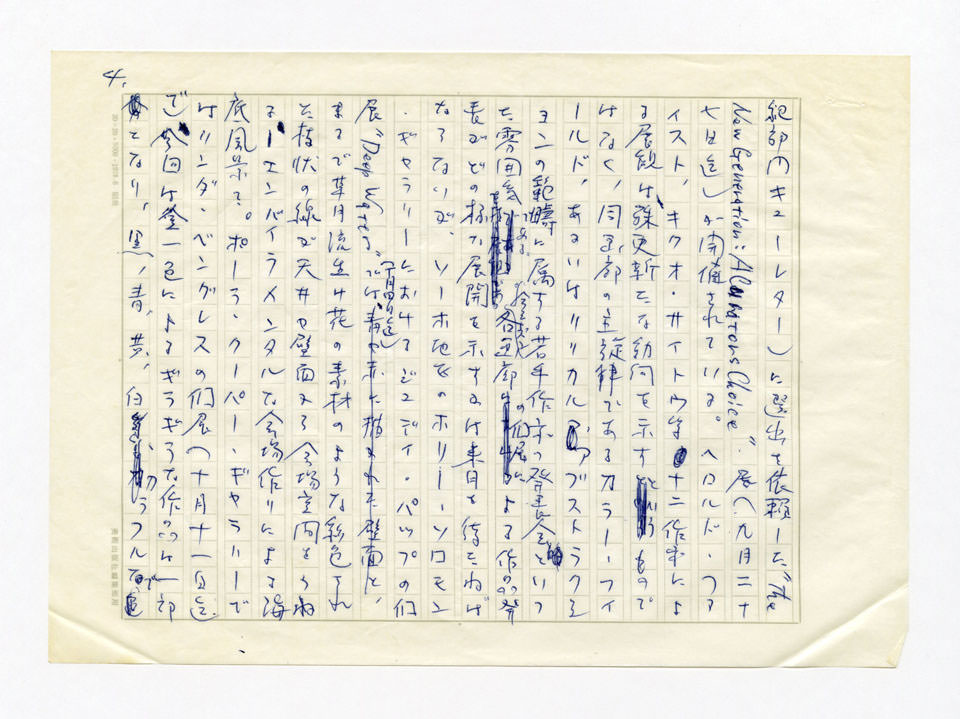 4.
紀部門キューレター)に選出を依頼した“The
New Generation: A Curators Choice”展(九月二十
七日迄)が開催されている。ヘロルド・ファ
イスト、キクオ・サイトウ等十二作家によ
る展観は殊更新たな動向を示すもので
はなく、同画廊の主旋律であるカラー・フィ
ールド、あるいはリリカル・アブストラクシ
ョンの範疇に属する若手作家の発表会といっ
た雰囲気である。各画廊の個展による作品発
表がどの様な展開を示すかは来月を待たねば
ならないが、ソーホ地区のホリー・ソロモン
・ギャラリーにおけるジュディ・パッフの個
展“Deep Water”では青や赤に描かれた壁面と、
まるで草月流生け花の素材のような彩色され
た枝状の線で天井や壁面から会場空間をうね
るエンバイラメンタルな会場作りによる海
底風景で。ポーラ・クーパー・ギャラリーで
はリンダ・ベングレスの個展(十月十一日迄
で今回は金一色によるギラギラな作品に一部
となり、黒、青、黄、白